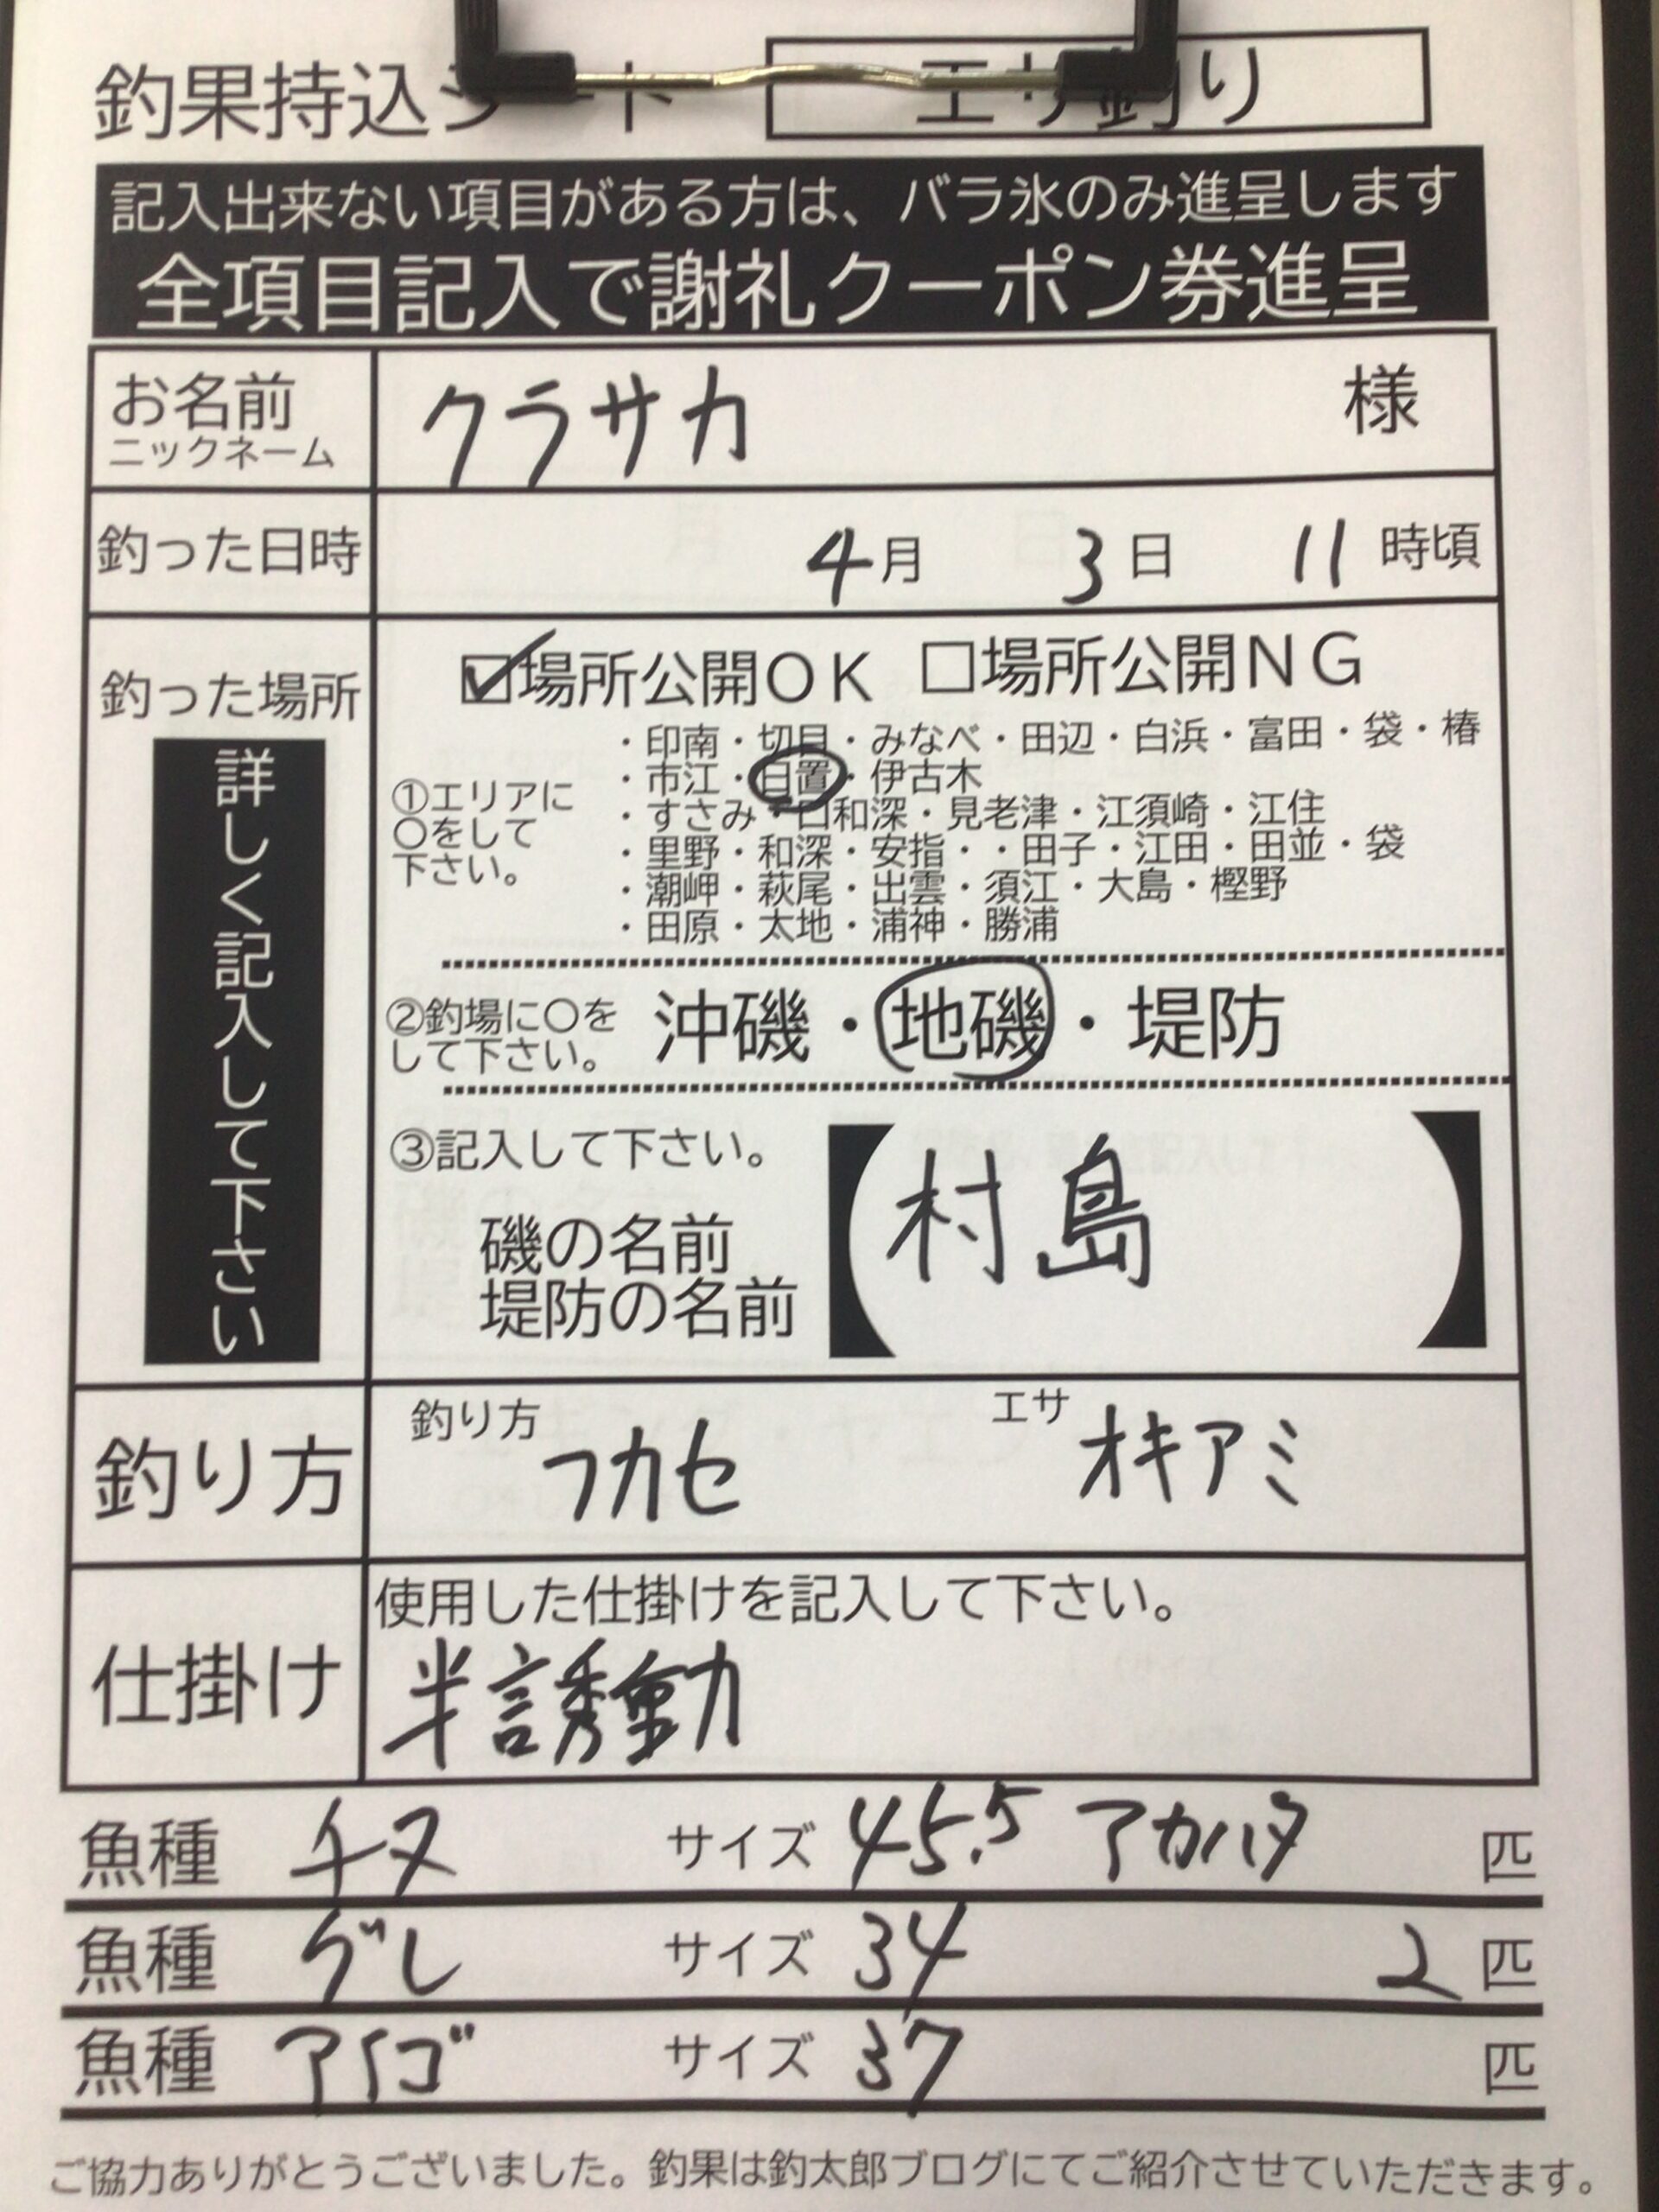 釣果持込シート エサ釣り
記入出来ない項目がある方は、バラ氷のみ進呈します
全項目記入で謝礼クーポン券進呈
お名前
ニックネーム
クラサカ 様
釣った日時 4月 3日 11時頃
釣った場所
詳しく記入して下さい
☑場所公開OK □場所公開NG
①エリアに
〇をして
下さい。
・印南・切目・みなべ・田辺・白浜・富田・袋・椿
・市江・日置・伊古木
・すさみ・口和深・見老津・江須崎・江住
・里野・和深・安指・・田子・江田・田並・袋
・潮岬・萩尾・出雲・須江・大島・樫野
・田原・太地・浦神・勝浦
②釣場に〇を
して下さい。
沖磯・地磯・堤防
③記入して下さい。
磯の名前
堤防の名前
【村島】
釣り方
釣り方 フカセ エサ オキアミ
仕掛け
使用した仕掛けを記入して下さい。
半誘動
魚種 チヌ サイズ 45.5 アカハタ 匹
魚種 グレ サイズ 34 2匹
魚種 アイゴ サイズ 37 匹
ご協力ありがとうございました。釣果は釣太郎ブログにてご紹介させていただきます。